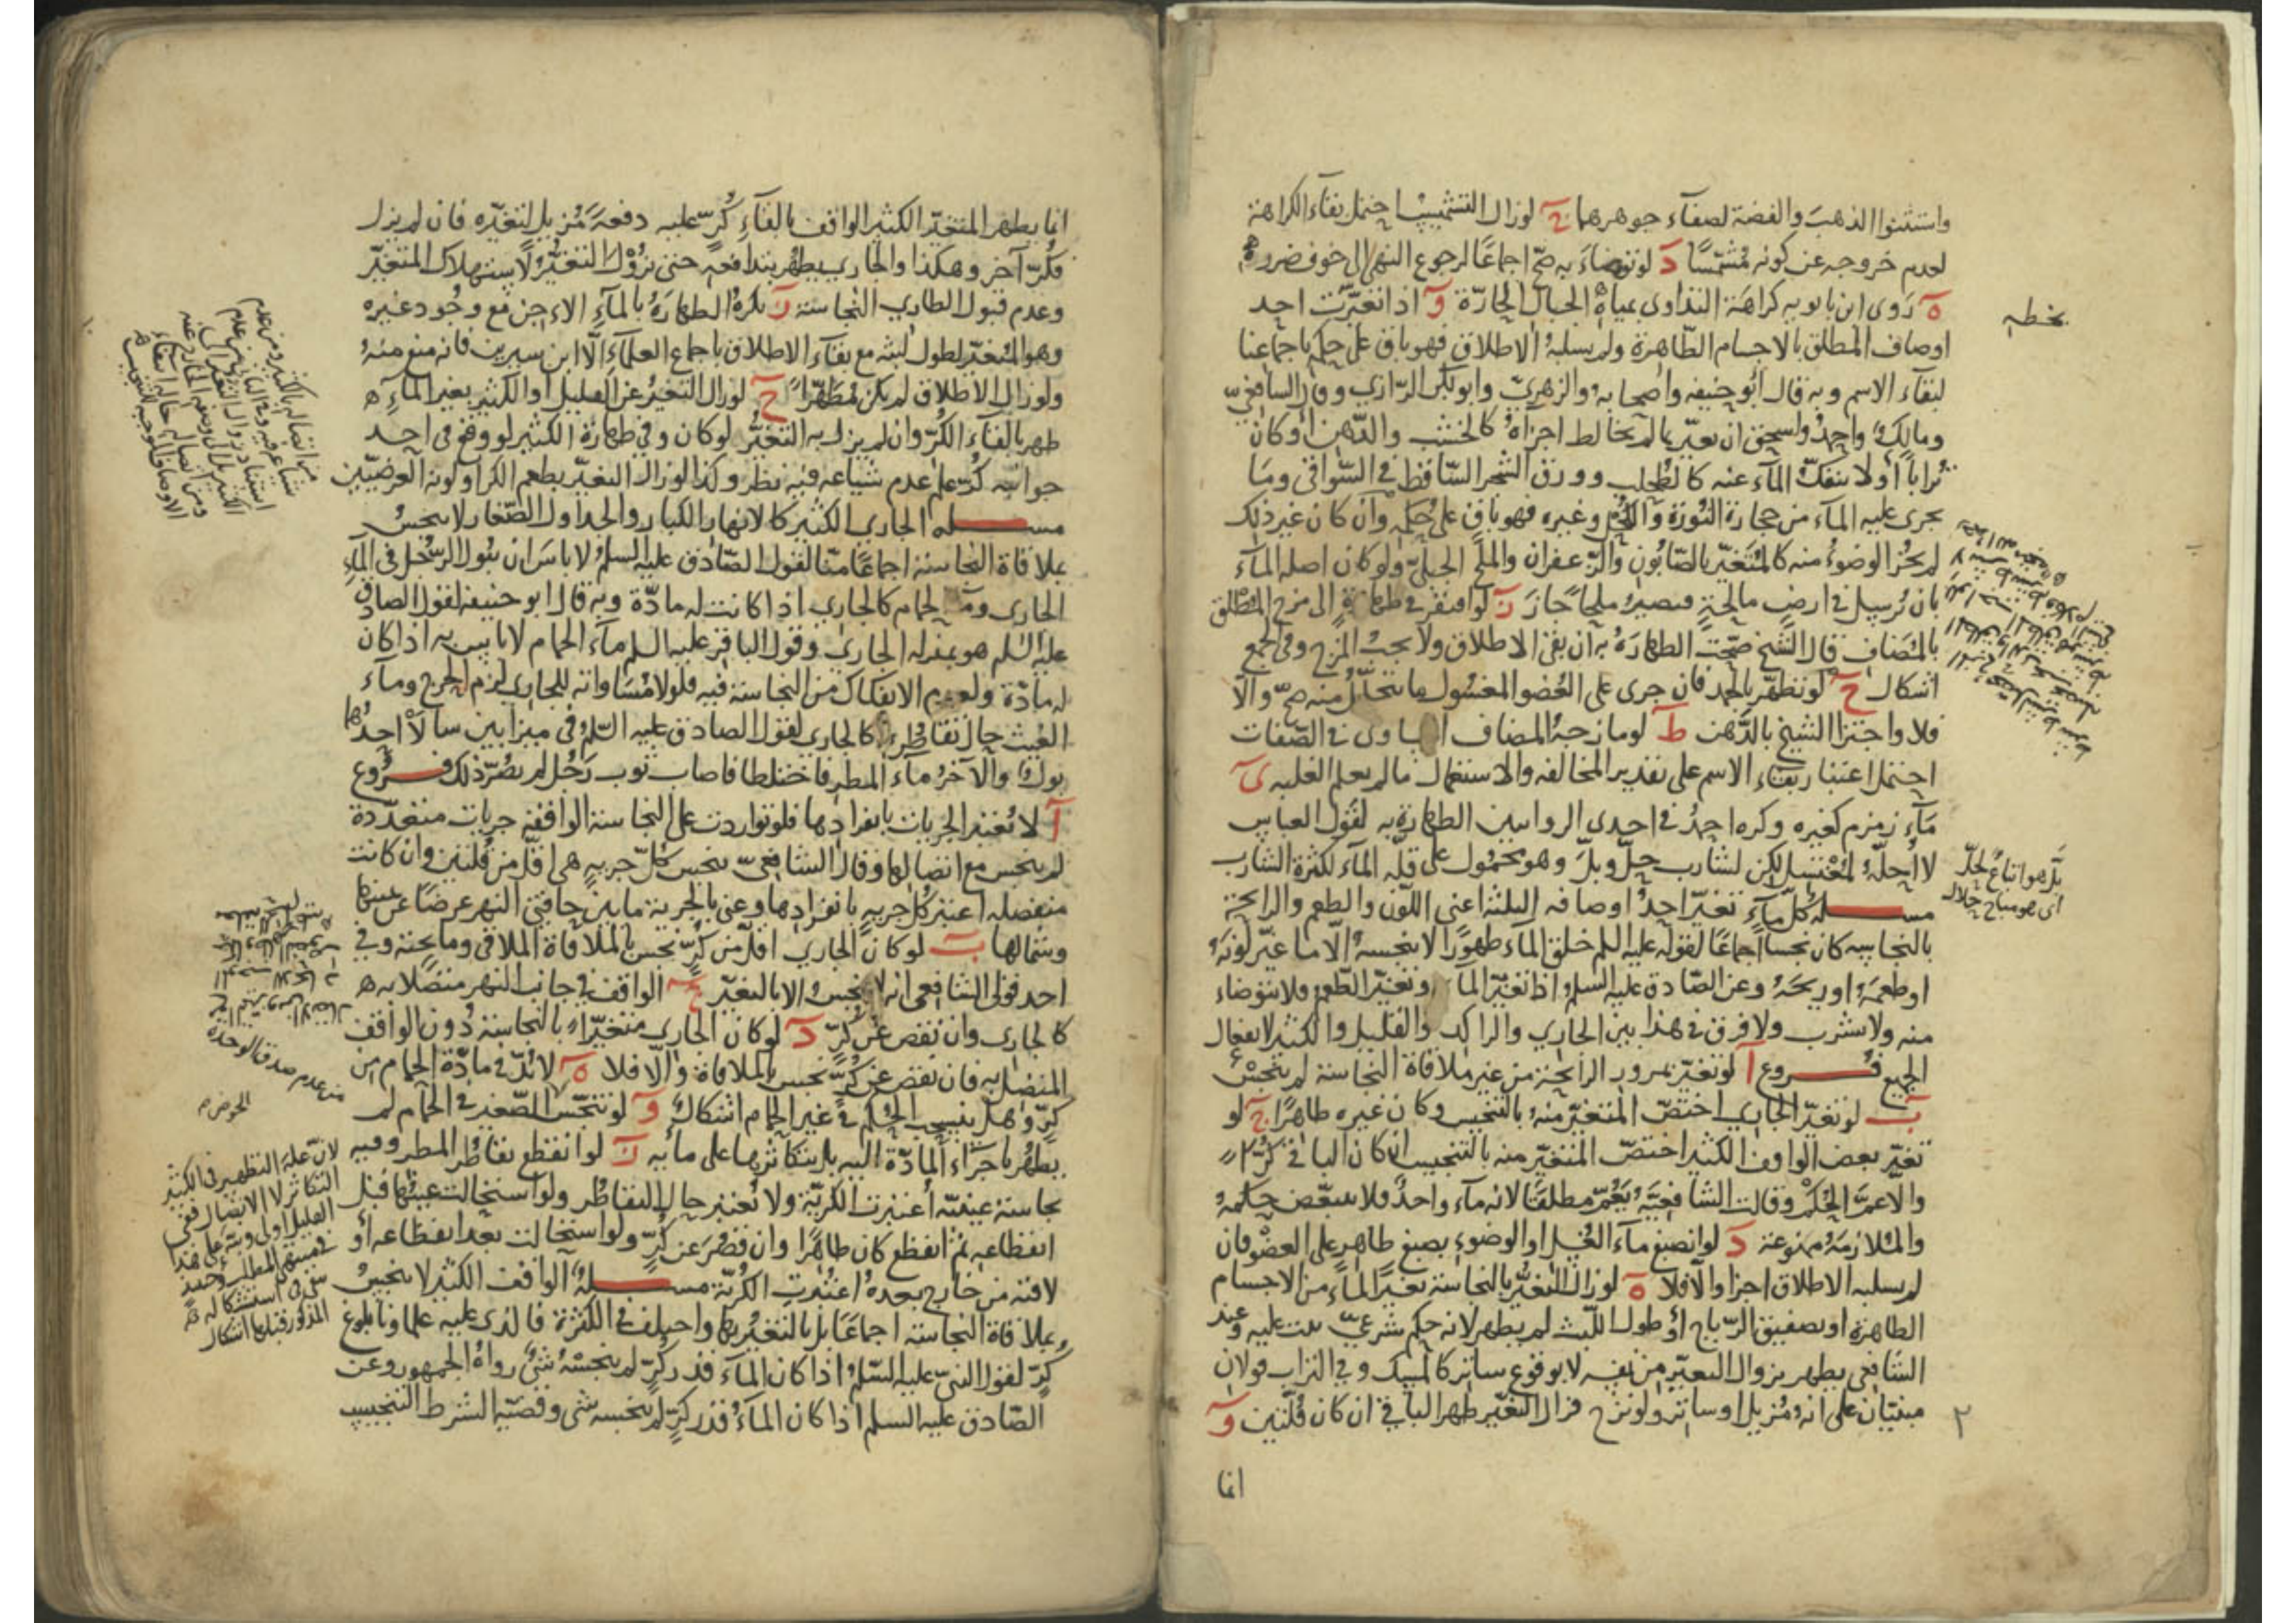 واستثنوا الذهب والفضة لصفاء جوهرهما ج لو زال التشميس احتمل بقاء الكراهة
لعدم خروجه عن كونه مشمسا د لو توضأ به صح اجماعا لرجوع النهى الى خوف ضرره
ه روى ابن بابويه كراهة التداوى بمياه الجبال الحارة و اذا تغيرت احد
اوصاف المطلق بالاجسام الطاهرة ولم يسلبه الاطلاق فهو باق على حكمه باجماعنا
لبقاء الاسم وبه قال ابو حنيفه واصحابه والزهري وابو بكر الرازي وقال الشافعي
ومالك واحمد واسحق ان تغير بما لم يخالط اجزاه كالخشب والدهن او كان
ترابا او لا ينفك الماء عنه كالطحلب وورق الشجر الساقط في السواقى وما
يجرى عليه الماء من حجارة النورة والكحل وغيره فهو باق على حكمه وان كان غير ذلك
لم يجز الوضوء منه كالمتغير بالصابون والزعفران والملح الجبلي ولو كان اصله الماء
بان يرسل في ارض مالحة فيصير ملحا جاز ز لو افتقر في طهارة الى مزج المطلق
بالمضاف قال الشيخ صحت الطهارة به ان بقى الاطلاق ولا يجب المزج وفى الجمع
اشكال ح لو تطهر بالجمد فان جرى على العضو المغسول ما يتحلل منه صح والا
فلا واجتزا الشيخ بالدهن ط لو مازجه المضاف المساوى في الصفات
احتمل اعتبار بقاء الاسم على تقدير المخالفه والاستعمال ما لم يعلم الغلبه ى
ماء زمزم كغيره وكره احمد في احدى الروايتين الطهارة به لقول العباس
لا احله لمغتسل لكن لشارب حل وبل وهو محمول على قلة الماء لكثرة الشارب
مسله كل ماء تغير احد اوصافه الثلثة اعنى اللون والطعم والرايحة
بالنجاسه كان نجسا اجماعا لقوله عليه السلم خلق الماء طهورا لا ينجسه الا ما غير لونه
او طعمه او ريحه وعن الصادق عليه السلم اذا تغير الماء وتغير الطعم فلا تتوضاء
منه ولا تشرب ولا فرق في هذا بين الجاري والراكد والقليل والكثير لانفعال
الجميع فروع ا لو تغير بمرور الرايحة من غير ملاقاة النجاسة لم ينجس
ب لو تغير الجاري اختص المتغير منه بالتنجيس وكان غيره طاهرا ج لو
تغير بعض الواقف الكثير اختص المتغير منه بالتنجيس ان كان الباقي كرا
والا عم الحكم وقالت الشافعية يعم مطلقا لانه ماء واحد فلا يتبعض حكمه
والملازمة ممنوعة د لو انصبغ ماء الغسل او الوضوء بصبغ طاهر على العضو فان
لم يسلبه الاطلاق اجزا والا فلا ه لو زال التغير بالنجاسة بغير الماء من الاجسام
الطاهرة او تصفيق الرياح او طول اللبث لم يطهر لانه حكم شرعي ثبت عليه وعند
الشافعي يطهر بزوال التغير من نفسه لا بوقوع ساتر كالمسك وفي التراب قولان
مبنيان على انه مزيل او ساتر ولو نزح فزال التغير طهر الباقي ان كان قلتين و
انما
بخطه
بل هو اتباع لحل
اى هو مباح حلال
٢
انما يطهر المتغير الكثير الواقف بالقاء كر عليه دفعة مزيل لتغيره فان لم يزل
فكر آخر وهكذا والجاري يطهر بتدافعه حتى يزول التغير لاستهلاك المتغير
وعدم قبول الطاري النجاسة ز يكره الطهارة بالماء الاجن مع وجود غيره
وهو المتغير لطول لبثه مع بقاء الاطلاق باجماع العلماء الا ابن سيرين فانه منع منه
ولو زال الاطلاق لم يكن مطهرا ح لو زال التغير عن القليل او الكثير بغير الماء
طهر بالقاء الكر وان لم يزل به التغير لو كان وفي طهارة الكثير لو وقع في احد
جوانبه كر علم عدم شياعه فيه نظر وكذا لو زال التغير بطعم الكر او لونه العرضيين
مسله الجاري الكثير كالانهار الكبار والجداول الصغار لا ينجس
بملاقاة النجاسة اجماعا منا لقول الصادق عليه السلم لا باس ان يبول الرجل في الماء
الجارى وماء الحمام كالجاري اذا كانت له مادة وبه قال ابو حنيفه لقول الصادق
عليه السلم هو بمنزله الجاري وقول الباقر عليه السلم ماء الحمام لا باس به اذا كان
له مادة ولعدم الانفكاك من النجاسة فيه فلولا مساواته للجاري لزم الحرج وماء
الغيث حال تقاطره كالجاري لقول الصادق عليه السلم في ميزابين سالا احدهما
بول والآخر ماء المطر فاختلطا فاصاب ثوب رجل لم يضر ذلك فروع
ا لا يعتبر الجريات بانفرادها فلو تواردت على النجاسة الواقفة جريات متعددة
لم ينجس مع اتصالها وقال الشافعي ينجس كل جريه هي اقل من قلتين وان كانت
منفصله اعتبر كل جريه بانفرادها وعنى بالجرية ما بين حافتي النهر عرضا عن يمينها
وشمالها ب لو كان الجاري اقل من كر نجس بالملاقاة الملاقى وما تحته وفي
احد قولى الشافعى انه لا ينجس الا بالتغير ج الواقف في جانب النهر متصلا به
كالجارى وان نقص عن كر د لو كان الجارى متغيرا بالنجاسة دون الواقف
المتصل به فان نقص عن كر نجس بالملاقاة والا فلا ه لا بد في مادة الحمام من
كر وهل ينسحب الحكم في غير الحمام اشكال و لو تنجس الصغير في الحمام لم
يطهر باجراء المادة اليه بل بتكاثرها على مائه ز لو انقطع تقاطر المطر وفيه
نجاسة عينيه اعتبرت الكرية ولا تعتبر حال التقاطر ولو استحالت عينها قبل
انقطاعه ثم انقطع كان طاهرا وان قصر عن كر ولو استحالت بعد انقطاعه او
لاقته من خارج بعده اعتبرت الكرية مسله الواقف الكثير لا ينجس
بملاقاة النجاسة اجماعا بل بالتغير بها واختلف في الكثرة فالذي عليه علماونا بلوغ
كر لقول النبي عليه السلم اذا كان الماء قدر كر لم ينجسه شئ رواه الجمهور وعن
الصادق عليه السلم اذا كان الماء قدر كر لم ينجسه شى وقضية الشرط التنجيس
من عدم صدق الوحدة
الحوض
لان علة التطهير في الكثير
التكاثر لا الاتصال ففى